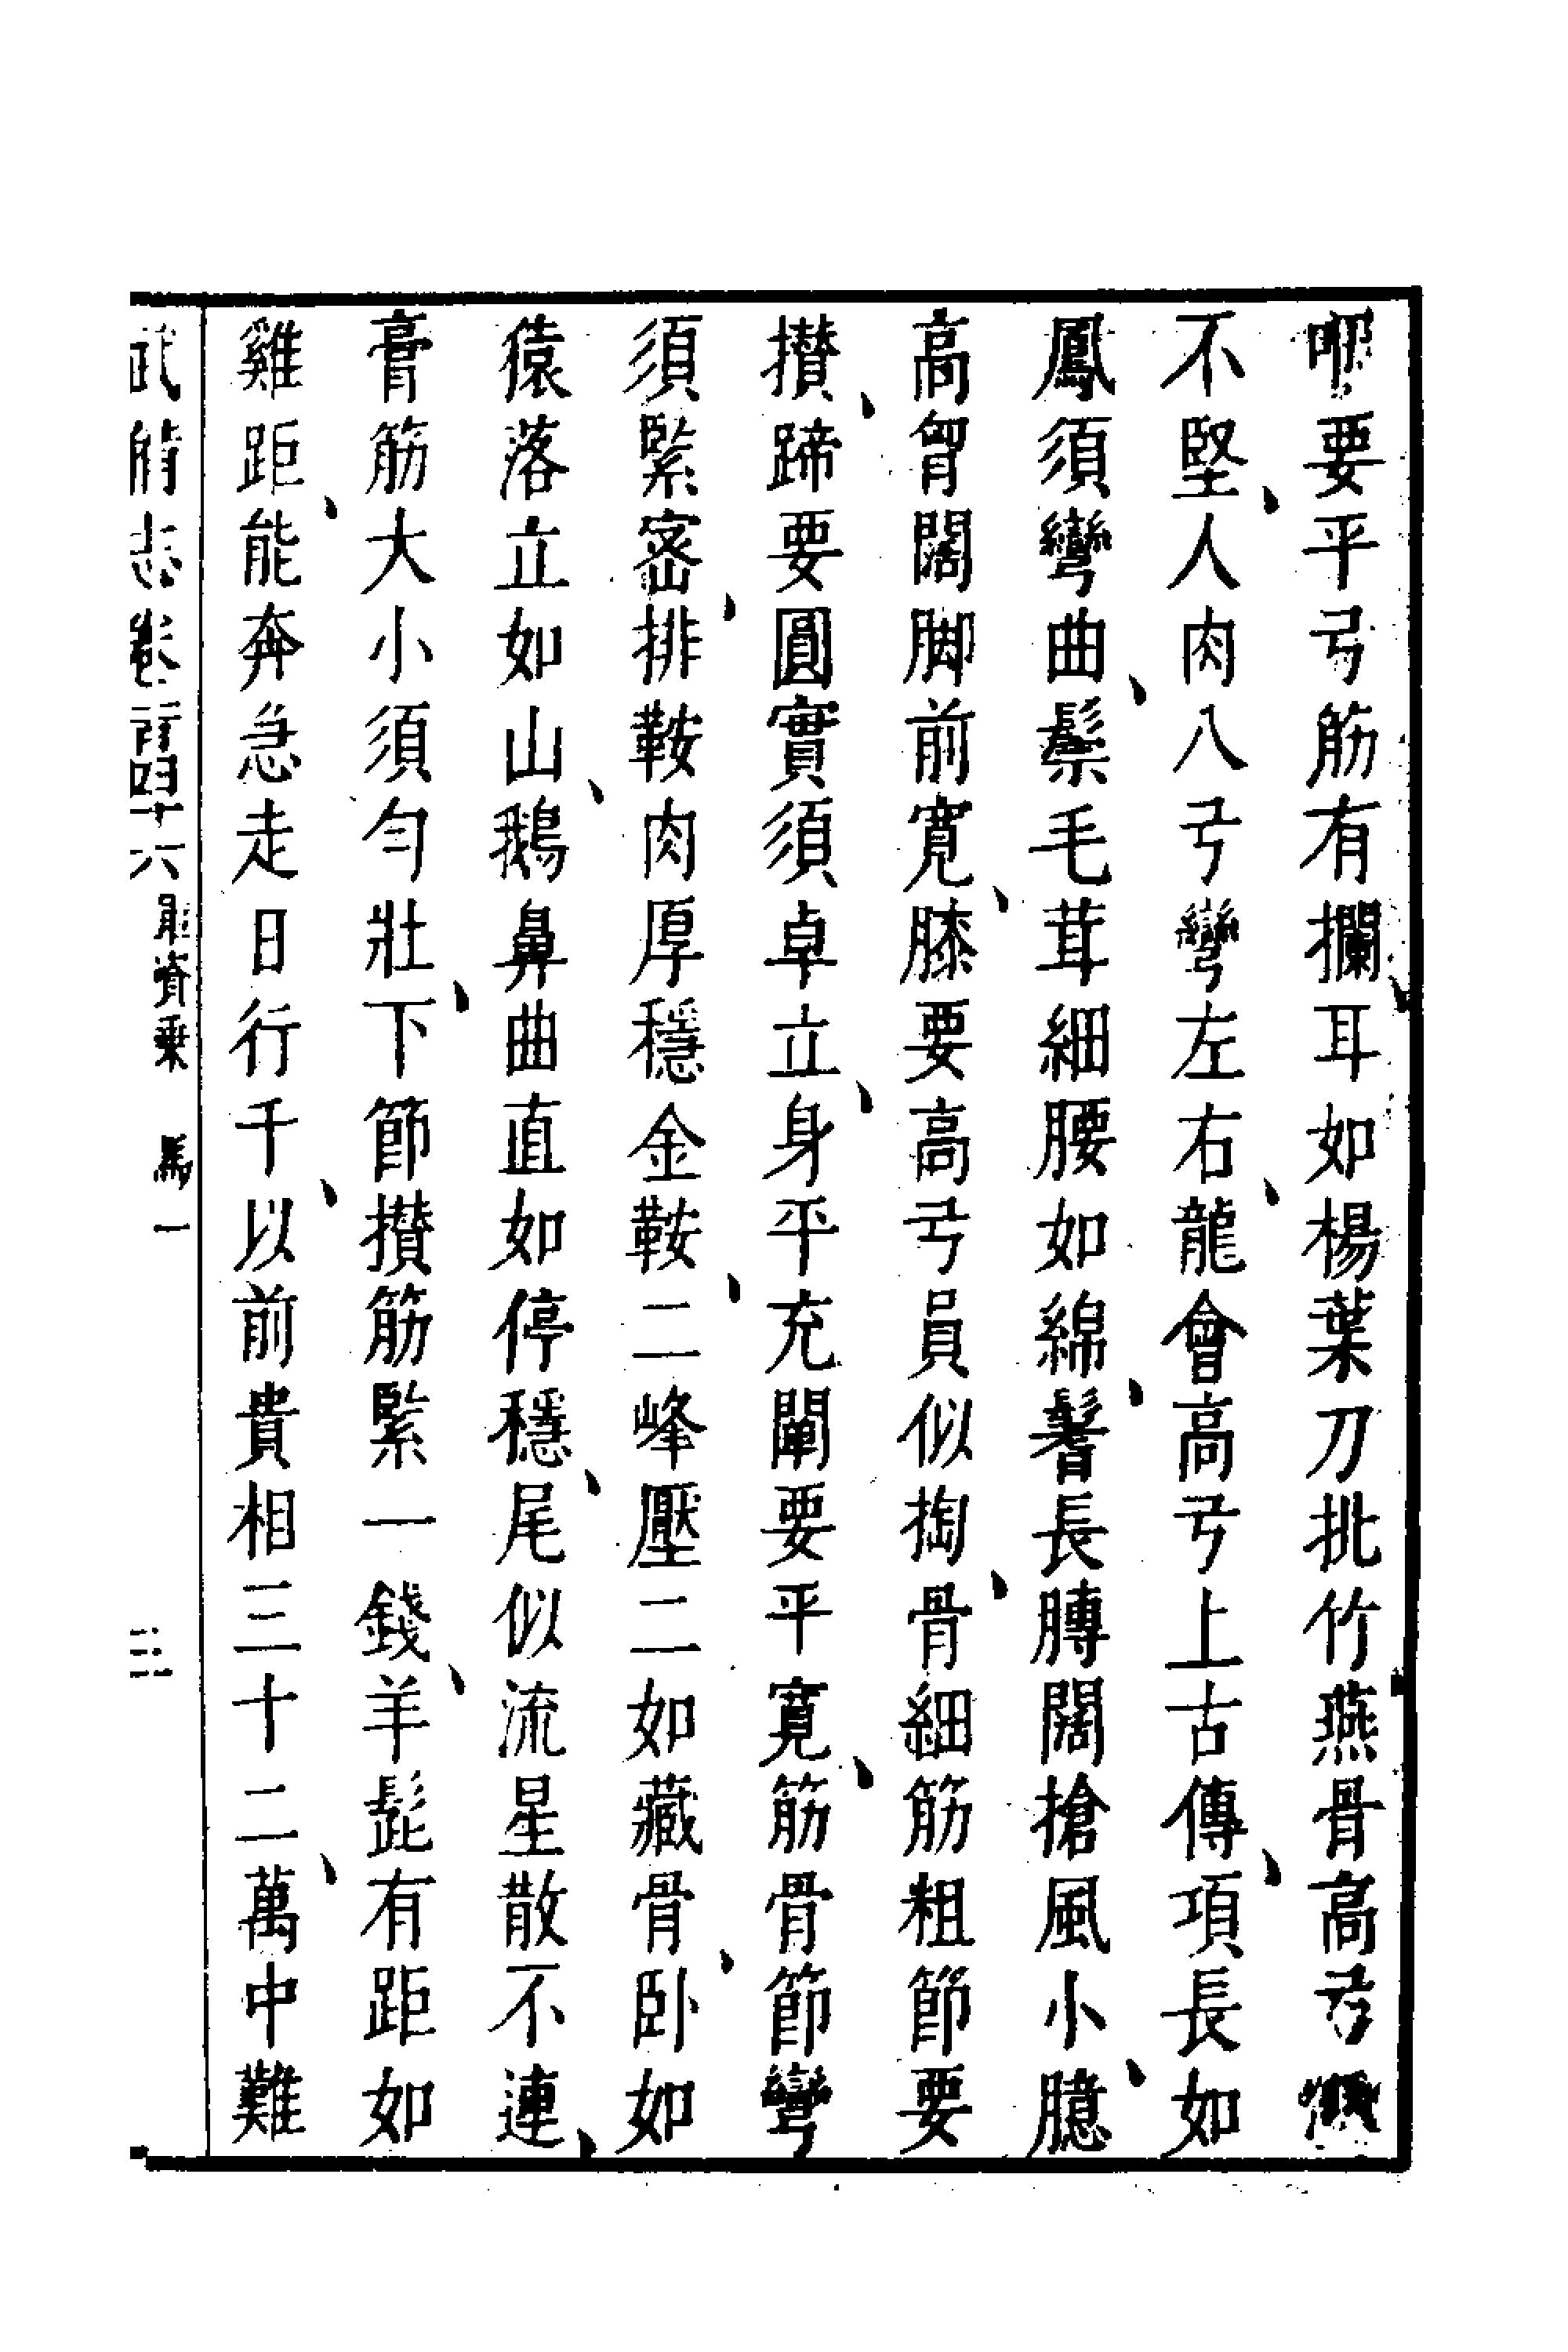 要平兮筋有攔耳如楊葉刀批竹燕骨高兮
不堅人肉八兮彎左右龍會高兮上古傳項長如
鳳須彎曲鬃毛茸細腰如綿鬐長膊闊搶風小臆
高胷闊脚前寬膝要高兮員似掏骨細筋粗節要
攅蹄要圓實須卓立身平充闡要平寬筋骨節彎
須緊密排鞍肉厚穩金鞍二峰壓二如藏骨卧如
猿落立如山鵝鼻曲直如停穩尾似流星散不連
膏筋大小須勻壯下節攅筋緊一錢羊髭有距如
雞距能奔急走日行千以前貴相三十二萬中難
武備志卷一百四十六 軍資乘 馬一 二